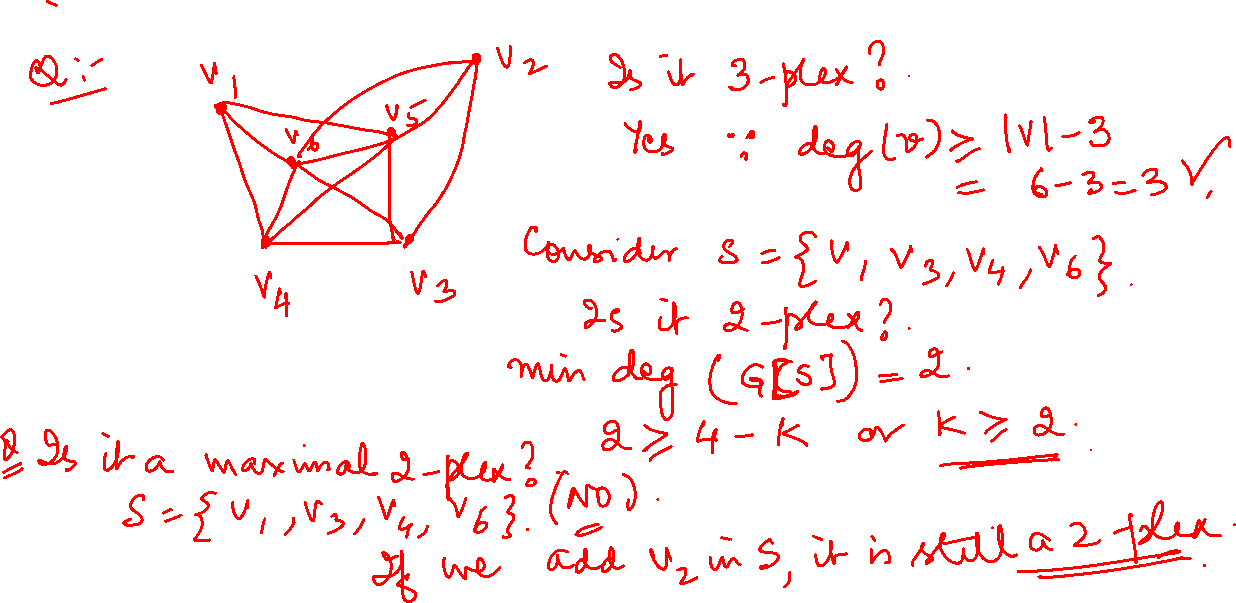 Q :-
V1
V2
V5
V6
V4
V3
Is it 3-plex?
Yes ∵ deg(v) ≥ |V|-3
= 6-3=3 ✓
Consider S = {V1, V3, V4, V6}.
Is it 2-plex?.
min deg (G[S]) = 2.
2 ≥ 4 - K or K ≥ 2.
Q Is it a maximal 2-plex? (NO).
S = {V1, V3, V4, V6}.
If we add V2 in S, it is still a 2-plex.